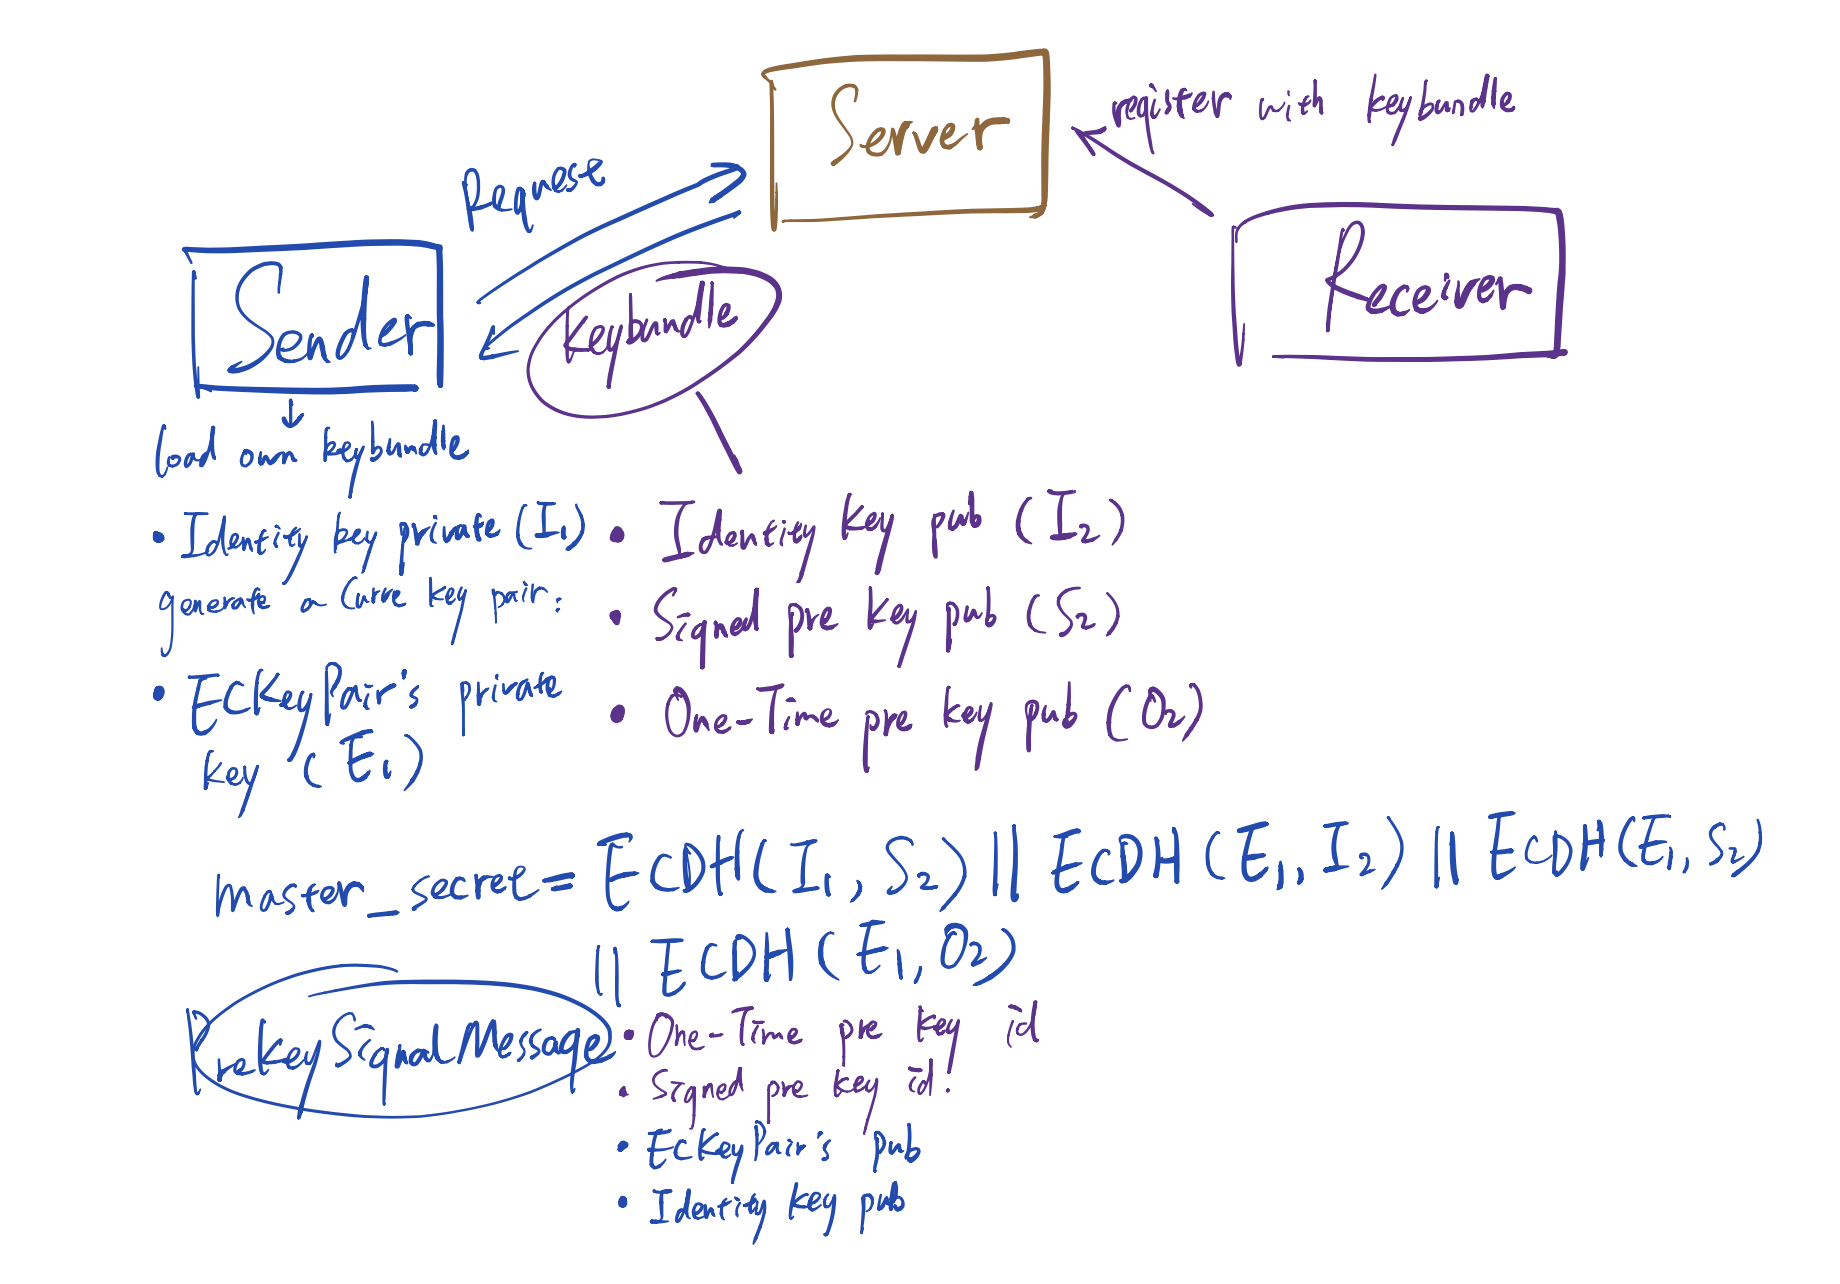 Server
register with keybundle
Request
Sender
Receiver
keybundle
load own keybundle
• Identity key private (I₁)
generate a Curve key pair:
• ECKeyPair's private
key (E₁)
• Identity key pub (I₂)
• Signed pre key pub (S₂)
• One-Time pre key pub (O₂)
master_secret = ECDH(I₁, S₂) || ECDH(E₁, I₂) || ECDH(E₁, S₂)
|| ECDH(E₁, O₂)
PreKeySignalMessage
• One-Time pre key id
• Signed pre key id!
• ECKeyPair's pub
• Identity key pub